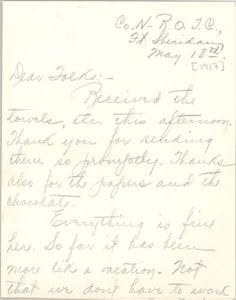 Co. N- R.O.T.C.,
Ft. Sheridan
May 18th
[1917]
Dear Folks:-
Received the
towels, etc. this afternoon.
Thank you for sending
them so promptly. Thanks
also for the papers and the
chocolate.
Everything is fine
here. So far it has been
more like a vacation- Not
that we don't have to work